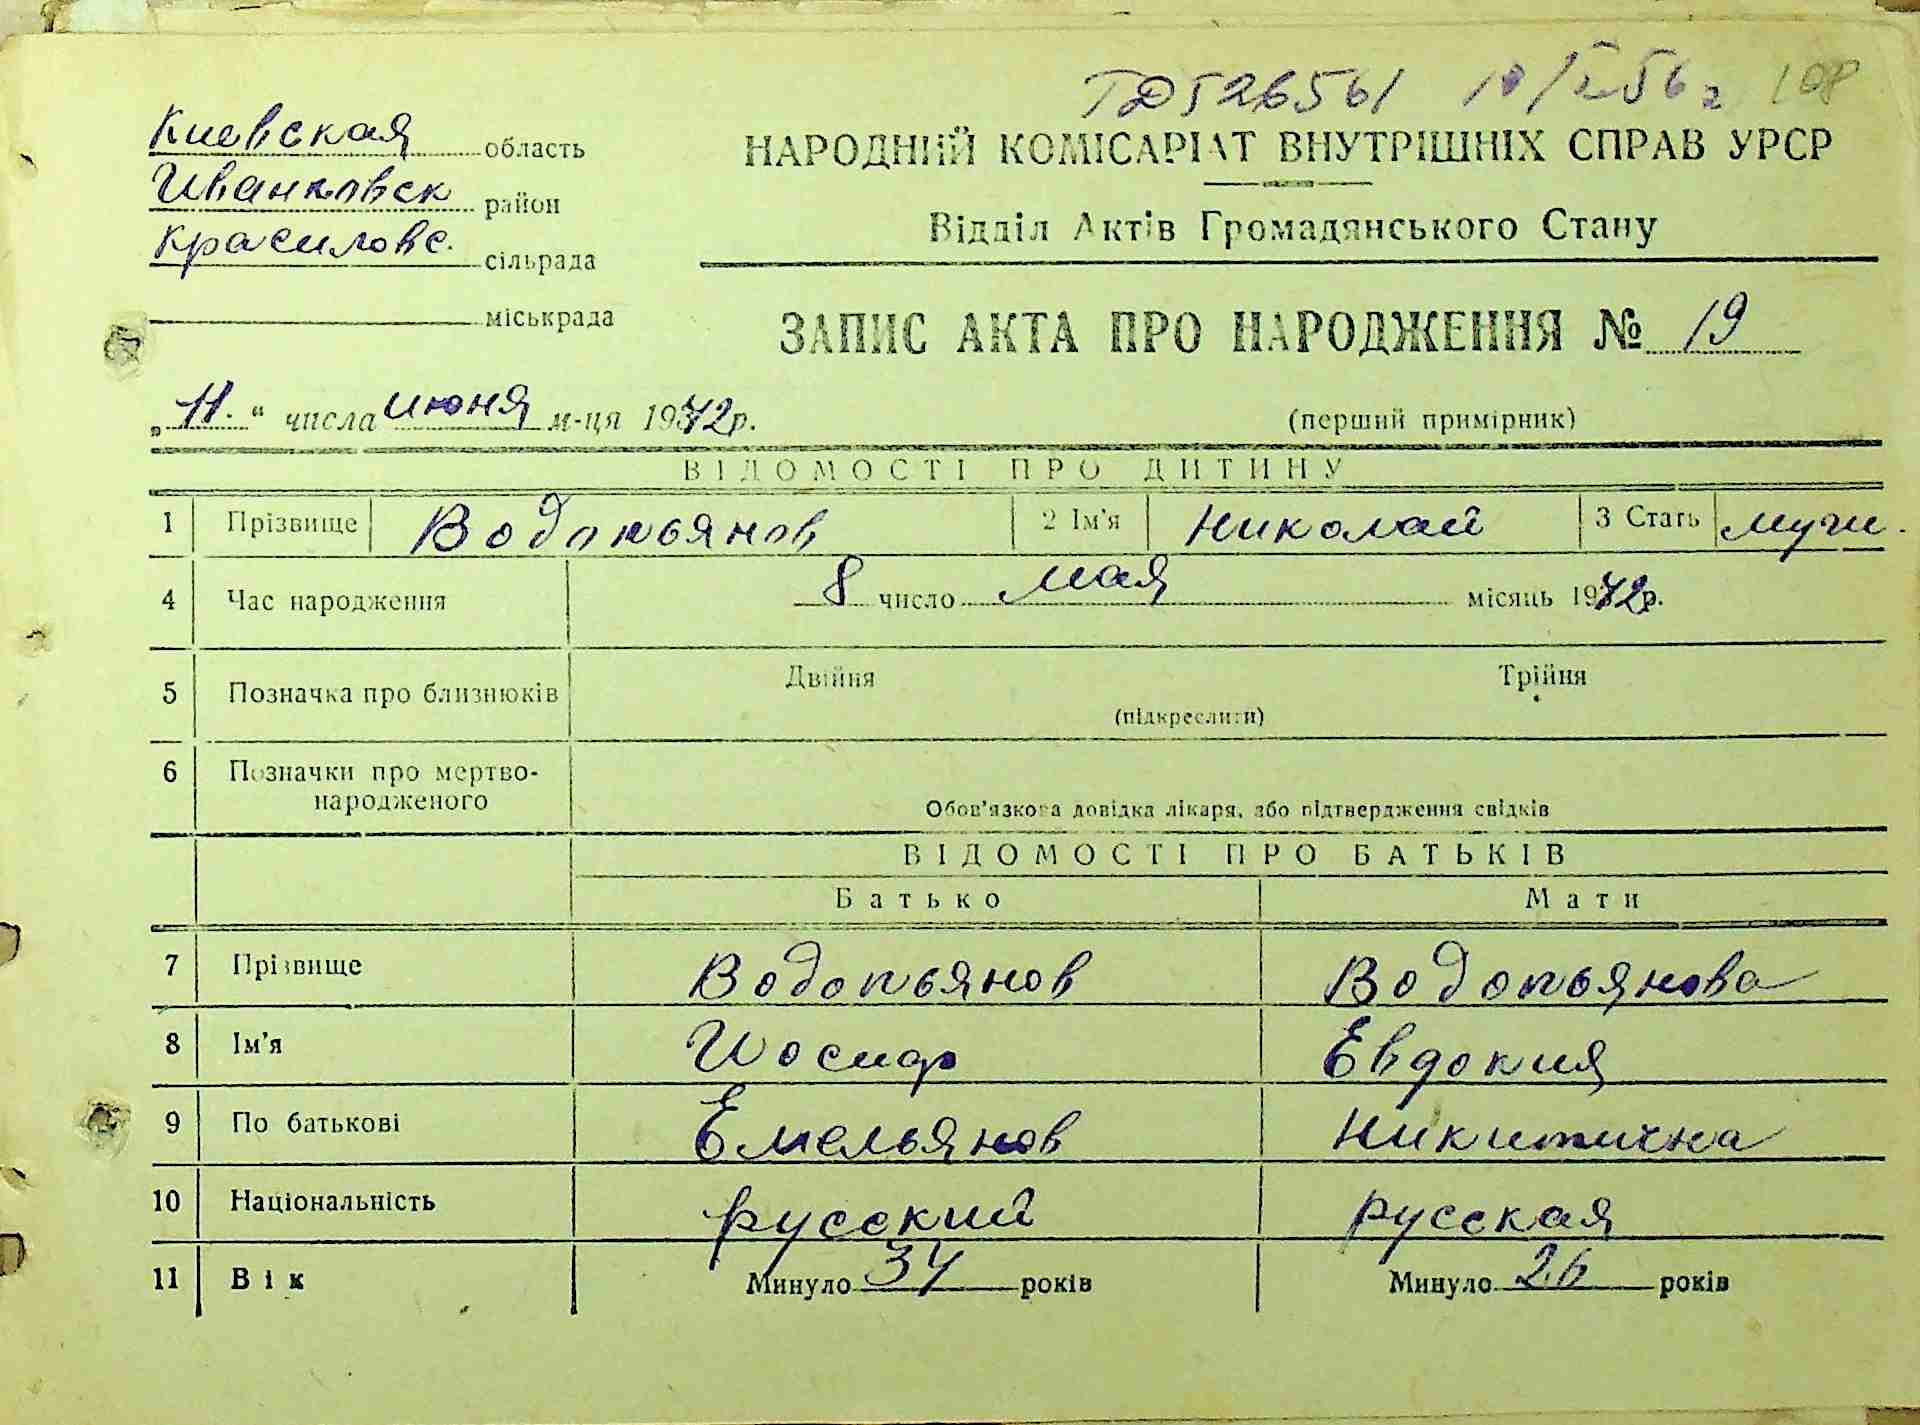 ТД 526561 10/V-56 г 108
Киевская область
НАРОДНИЙ КОМІСАРІАТ ВНУТРІШНІХ СПРАВ УРСР
Иванковск район
Відділ Актів Громадянського Стану
Красиловс. сільрада
міськрада
ЗАПИС АКТА ПРО НАРОДЖЕННЯ № 19
„11." числа июня м-ця 1942р.
(перший примірник)
ВІДОМОСТІ ПРО ДИТИНУ
1 Прізвище Водопьянов 2 Ім'я Николай 3 Стать мужч.
4 Час народження 8 число мая місяць 1942р.
5 Позначка про близнюків Двійня Трійня
(підкреслити)
6 Позначки про мертво-
народженого
Обов'язкова довідка лікаря, або підтвердження свідків
ВІДОМОСТІ ПРО БАТЬКІВ
Батько Мати
7 Прізвище Водопьянов Водопьянова
8 Ім'я Иосиф Евдокия
9 По батькові Емельянов Никитична
10 Національність русский русская
11 Вік Минуло 34 років Минуло 26 років